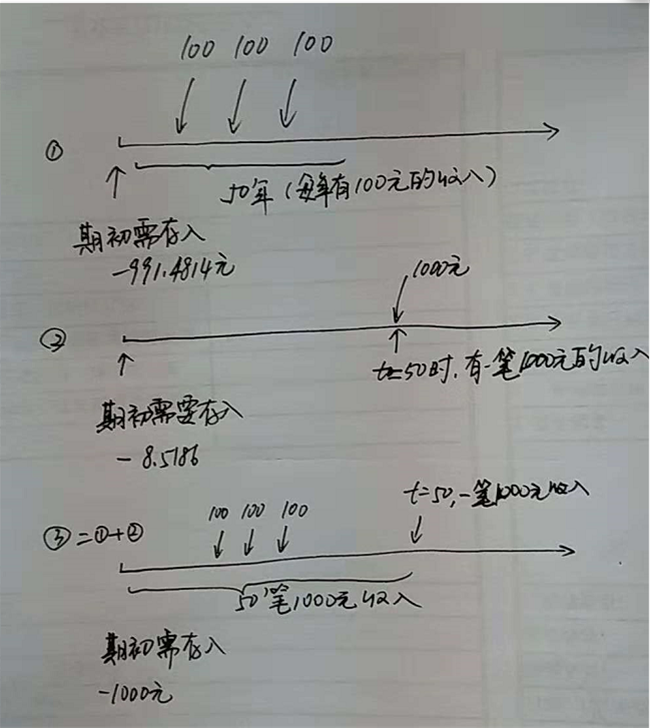 100 100 100
①
50年（每年有100元的收入）
期初需存入
-991.4814元
1000元
②
t=50时，有一笔1000元的收入
期初需要存入
- 8.5186
t=50,一笔1000元收入
100 100 100
③=①+②
50笔1000元收入
期初需存入
-1000元